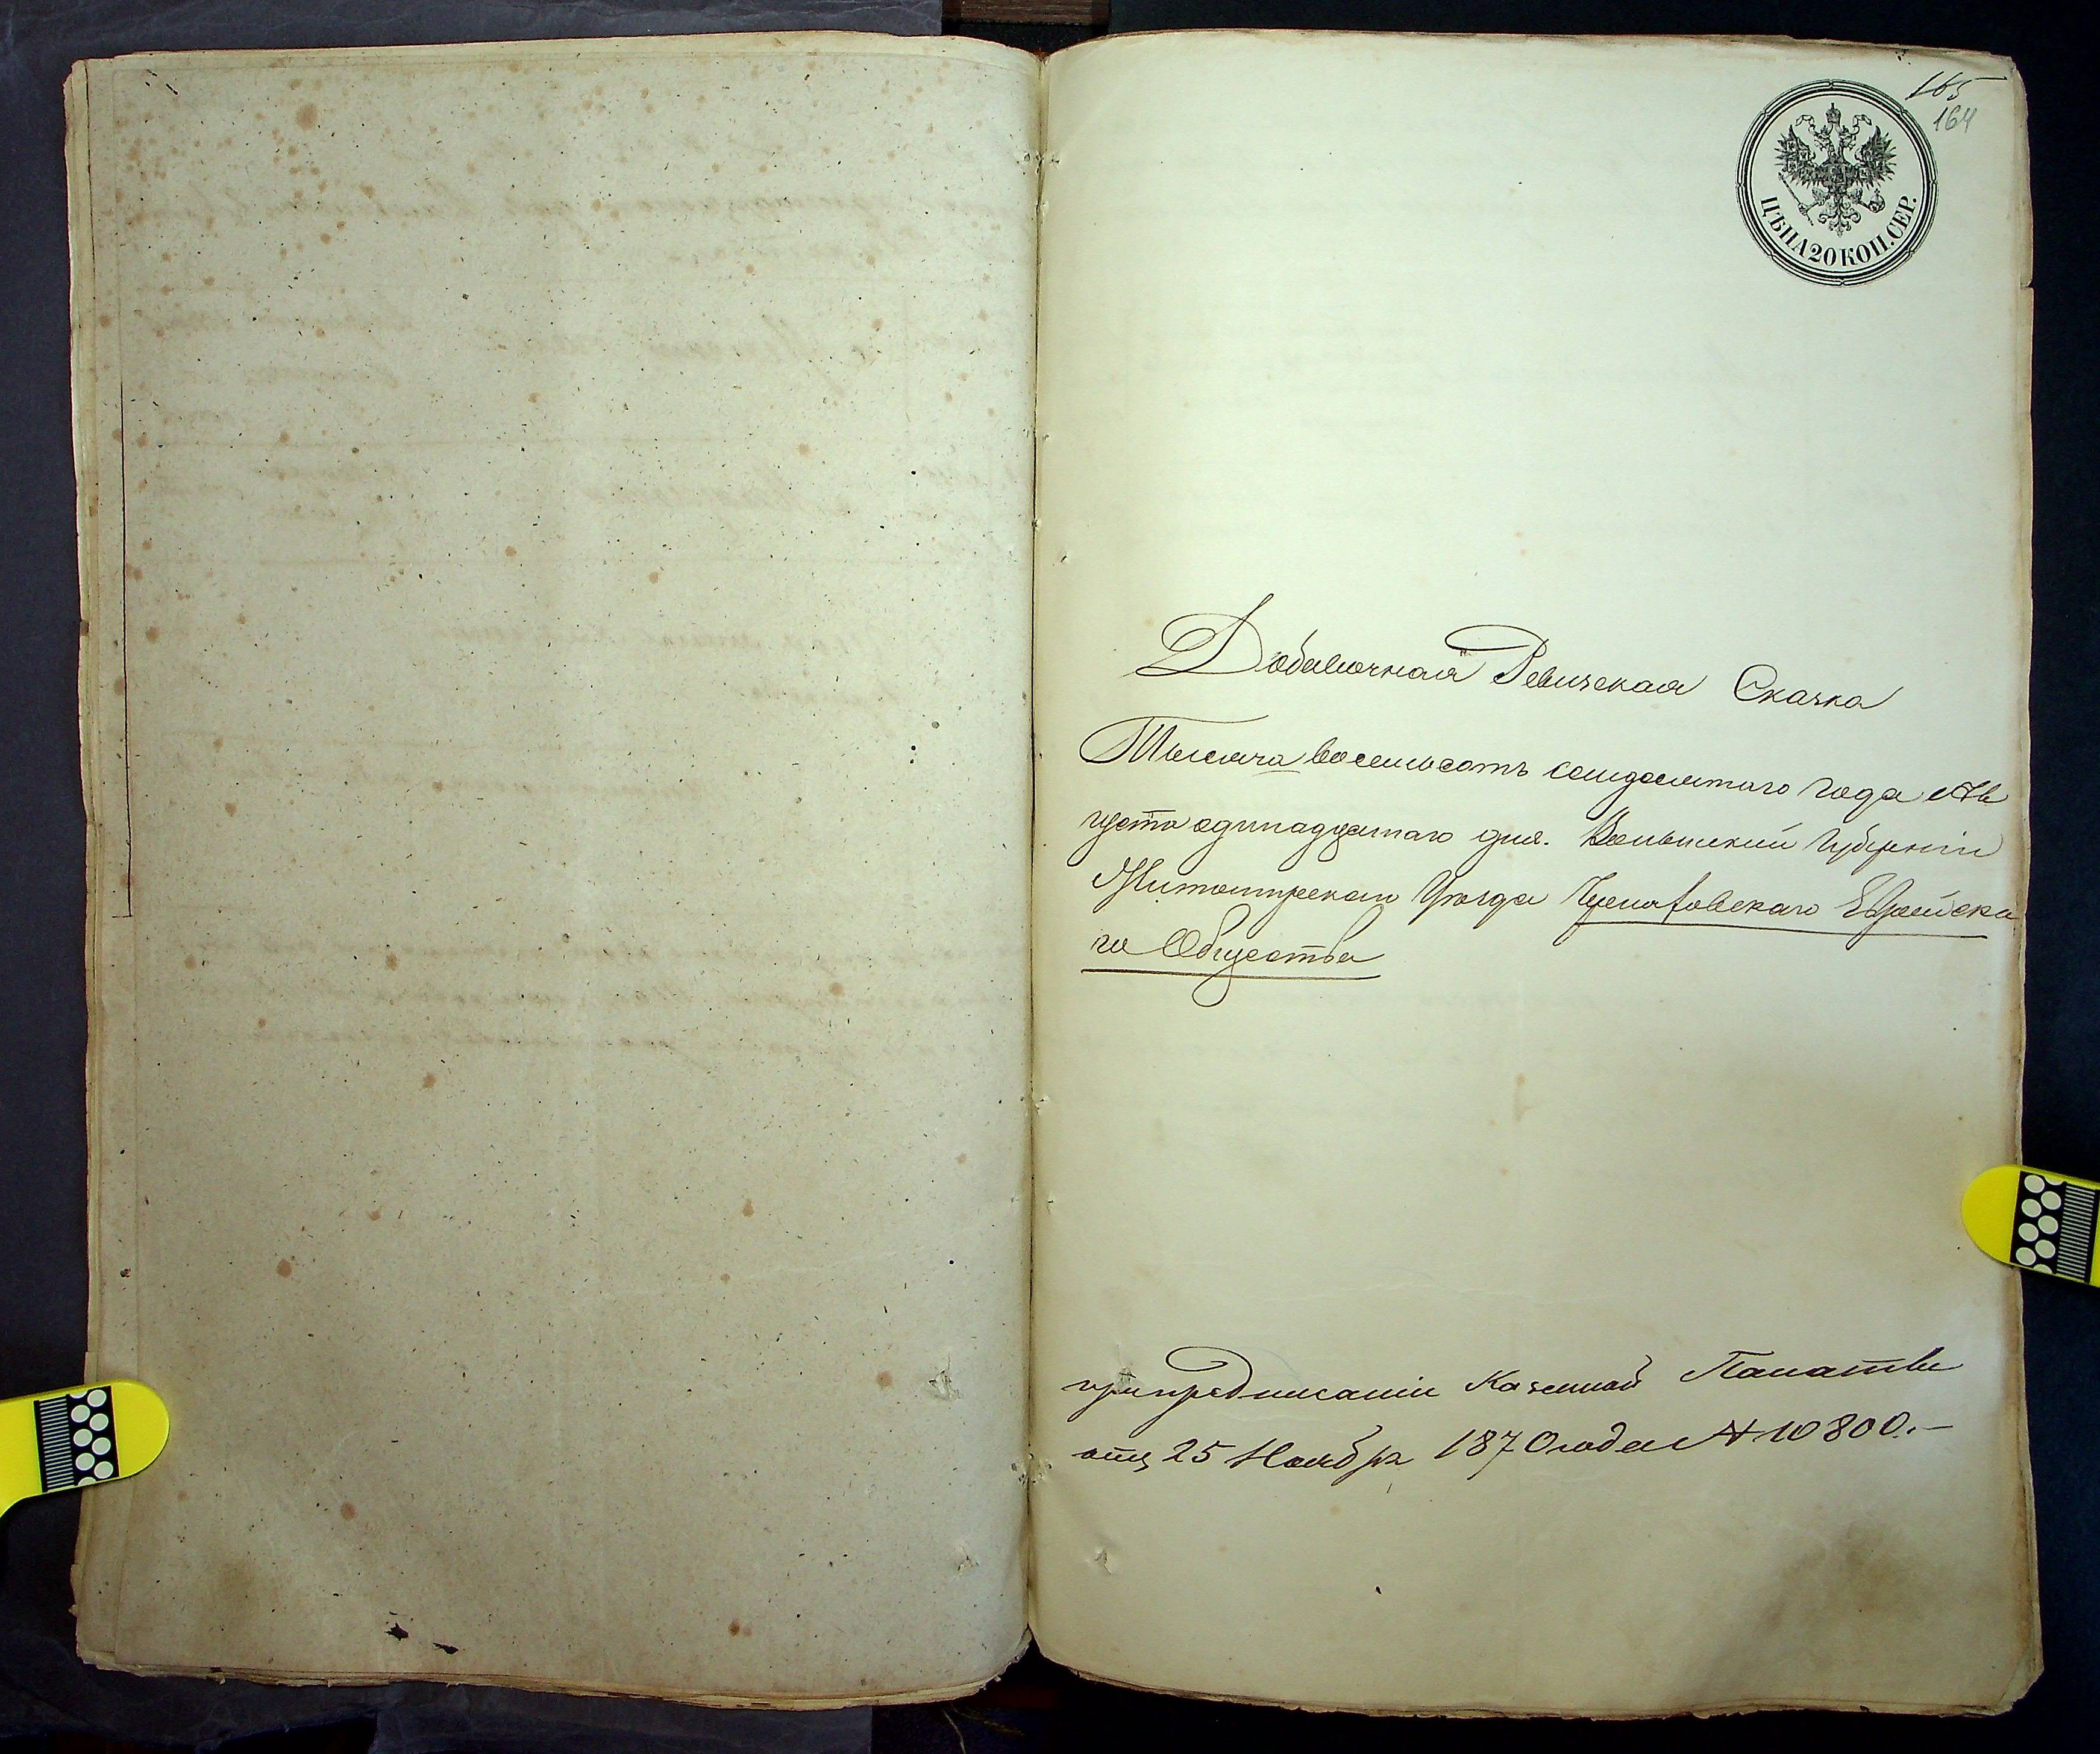 165
164
ЦѢНА 20 КОП. СЕР.
Добавочная Ревизская Сказка
Тысяча восемьсотъ семидесятого года Ав
густа одинадцатаго дня. Волынской Губерніи
Житомирскаго Уѣзда Еврейска
го Общества
при предписаніи Казенной Палаты
отъ 25 Ноября 1870 года № 10800.-